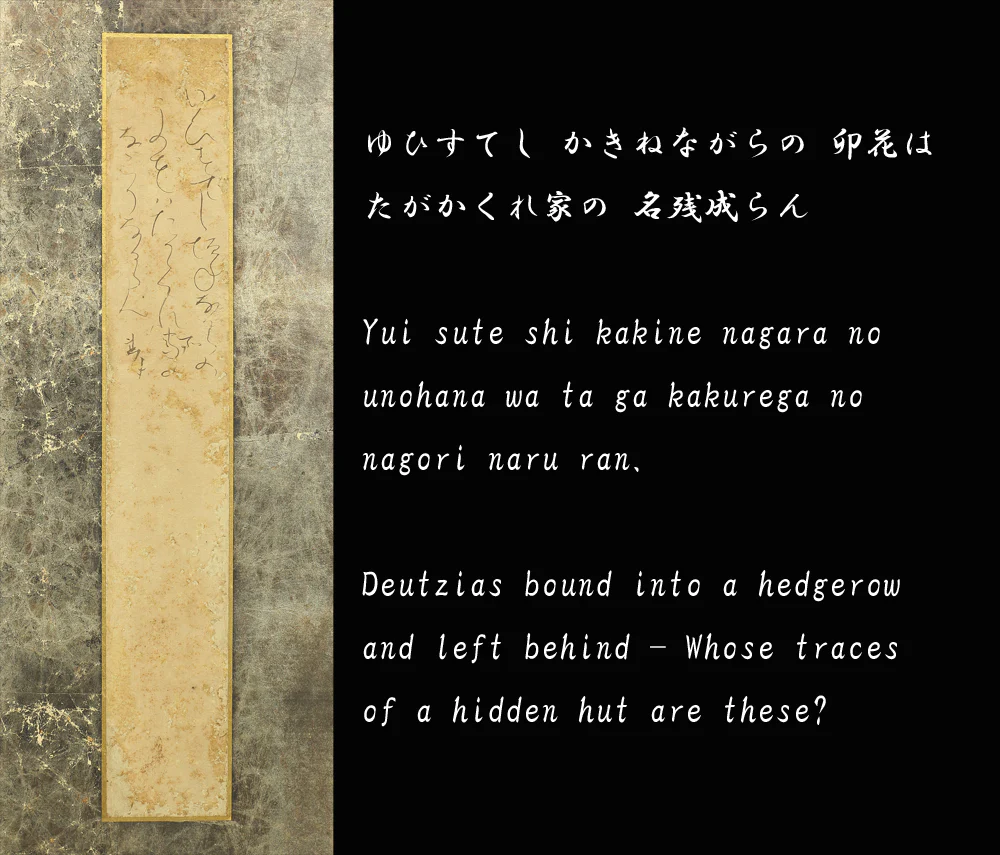 ゆひすてし かきねながらの 卯花は
たがかくれ家の 名残成らん
Yui sute shi kakine nagara no
unohana wa ta ga kakurega no
nagori naru ran.
Deutzias bound into a hedgerow
and left behind – Whose traces
of a hidden hut are these?